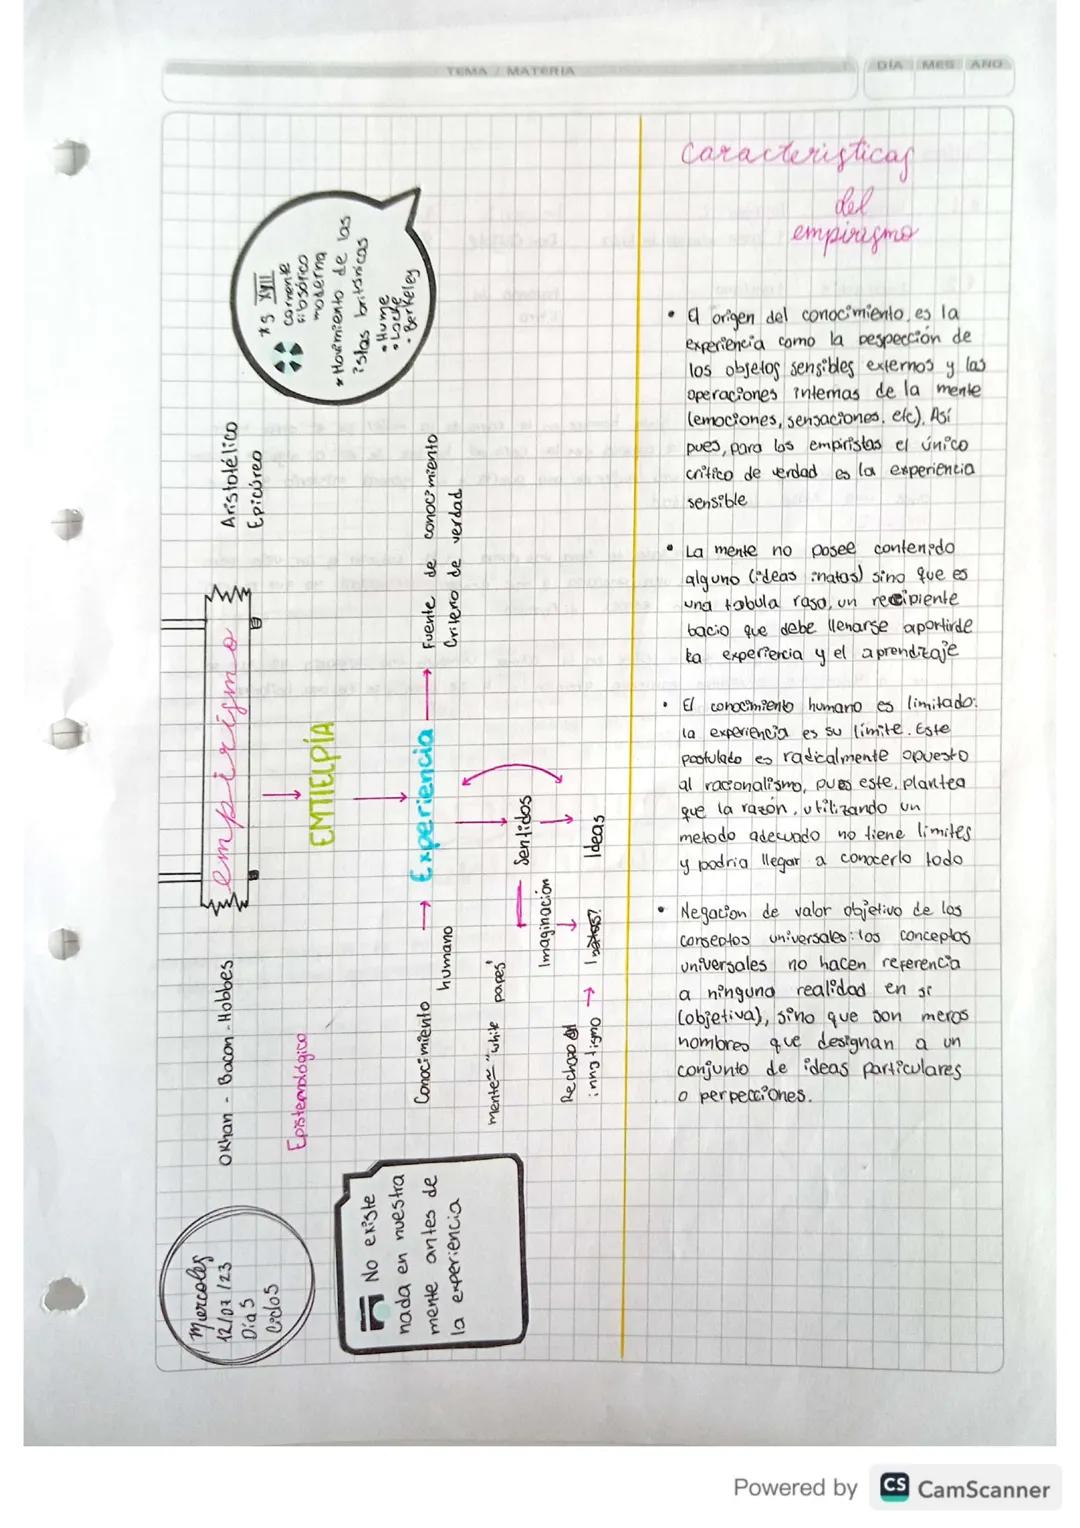 TEMA / MATERIA
DÍA MES AÑO
Miercoles
12/07/23
Día 5
Ciclo 5
Okhan - Bacon - Hobbes
empirismo
Aristotélico
Epicúreo
* S XVII
corriente
filosófico
moderna
* Movimiento de las
islas británicas
• Hume
• Locke
• Berkeley
Epistemológico
EMTIELPÍA
No existe
nada en nuestra
mente antes de
la experiencia
Conocimiento
humano
Experiencia
Fuente de conocimiento
Criterio de verdad
mente = "white papes"
Sentidos
Imaginación
Ideas
Rechazo al
innatismo
Innatas?
Caracteristicas
del
empirismo
• El origen del conocimiento, es la
experiencia como la pespección de
los objetos sensibles externos y las
operaciones internas de la mente
(emociones, sensaciones, etc). Así
pues, para los empiristas el único
critico de verdad es la experiencia
sensible
• La mente no posee contenido
alguno (ideas inatas) sino que es
una tabula rasa, un recipiente
bacio que debe llenarse apartirde
la experiencia y el aprendizaje
• El conocimiento humano es limitado:
la experiencia es su límite. Este
postulado es radicalmente opuesto
al racionalismo, pues este, plantea
que la razón, utilizando un
metodo adecuado no tiene limites
y podria llegar a conocerlo todo
• Negacion de valor objetivo de los
conseptos universales: los conceptos
universales no hacen referencia
a ninguna realidad en si
(objetiva), sino que son meros
nombres que designan a un
conjunto de ideas particulares
o perpecciones.
Powered by CS CamScanner